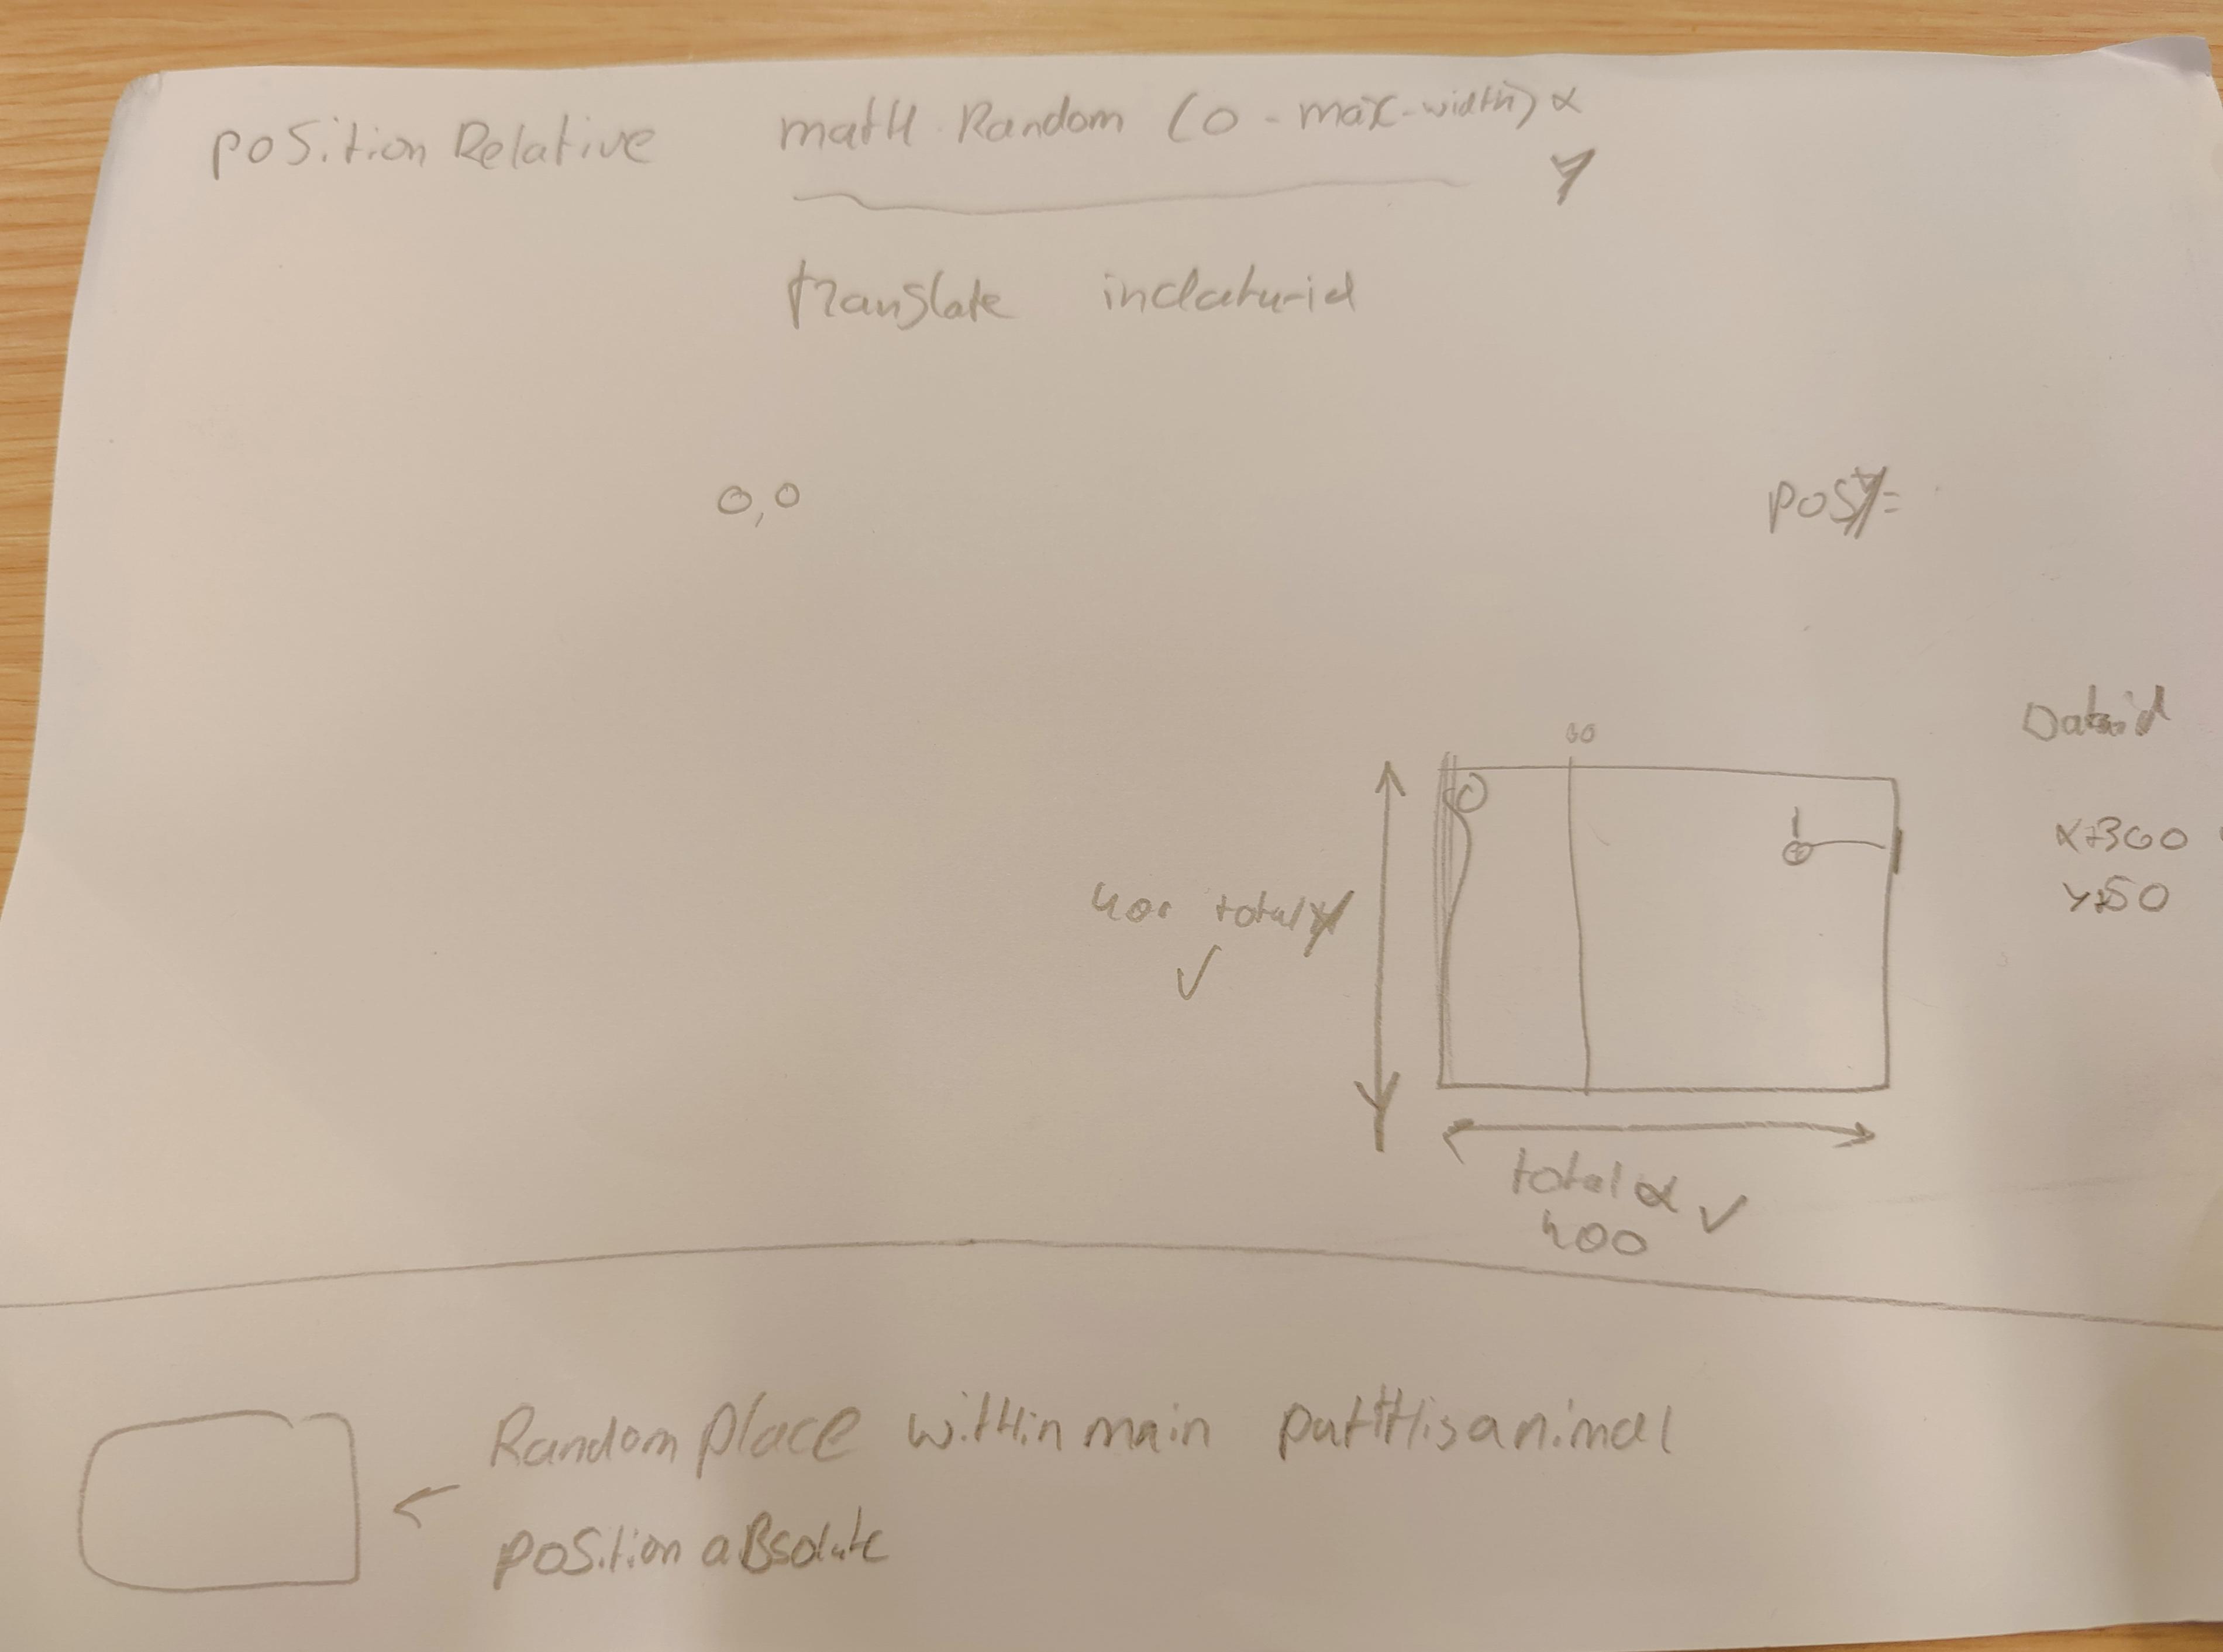 position Relative math Random (0 - max-width) x
y
translate
0,0
posy=
Data-id
60
x=360
y=50
400 total y
total x
400
Random place within main put this animal
position aBsolute